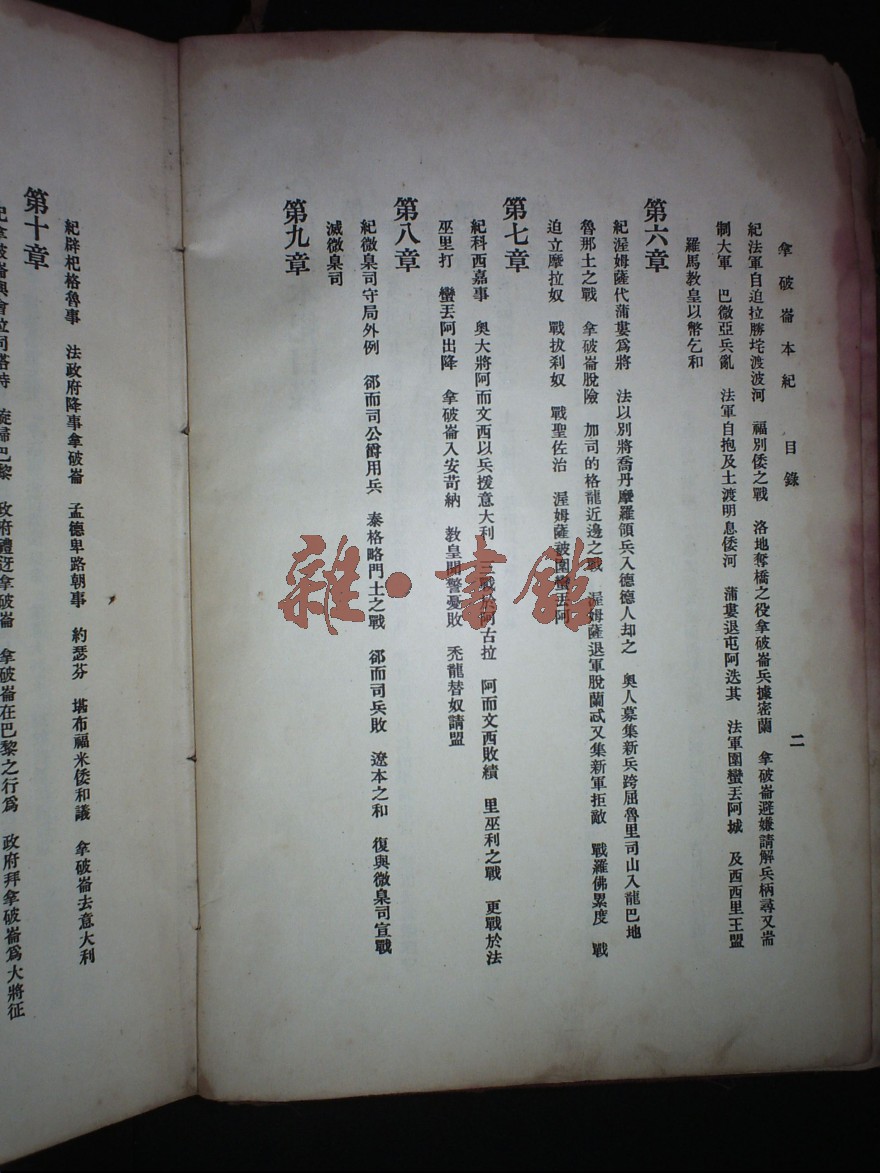 拿破崙本紀 目錄 二
紀法軍自迫拉勝垞渡波河 福別倭之戰 洛地奪橋之役拿破崙兵據密蘭 拿破崙避嫌請解兵柄尋又耑
制大軍 巴微亞兵亂 法軍自抱及土渡明息倭河 蒲婁退屯阿迭其 法軍圍蠻丟阿城 及西西里王盟
羅馬教皇以幣乞和
第六章
紀渥姆薩代蒲婁爲將 法以別將喬丹摩羅領兵入德德人却之 奧人募集新兵跨屈魯里司山入龍巴地
魯那土之戰 拿破崙脫險 加司的格龍近邊之戰 渥姆薩退軍脫蘭忒又集新軍拒敵 戰羅佛累度 戰
迫立摩拉奴 戰拔刹奴 戰聖佐治 渥姆薩被圍蠻丟阿
第七章
紀科西嘉事 奧大將阿而文西以兵援意大利 三戰於阿古拉 阿而文西敗績 里巫利之戰 更戰於法
巫里打 蠻丟阿出降 拿破崙入安苛納 教皇聞警憂敗 禿龍替奴請盟
第八章
紀微臬司守局外例 郤而司公爵用兵 泰格略門土之戰 郤而司兵敗 遼本之和 復與微臬司宣戰
滅微臬司
第九章
紀辟杞格魯事 法政府降事拿破崙 孟德卑路朝事 約瑟芬 堪布福米倭和議 拿破崙去意大利
第十章
紀拿破崙與會拉司塔特 旋歸巴黎 政府禮迓拿破崙 拿破崙在巴黎之行爲 政府拜拿破崙爲大將征
雜·書館